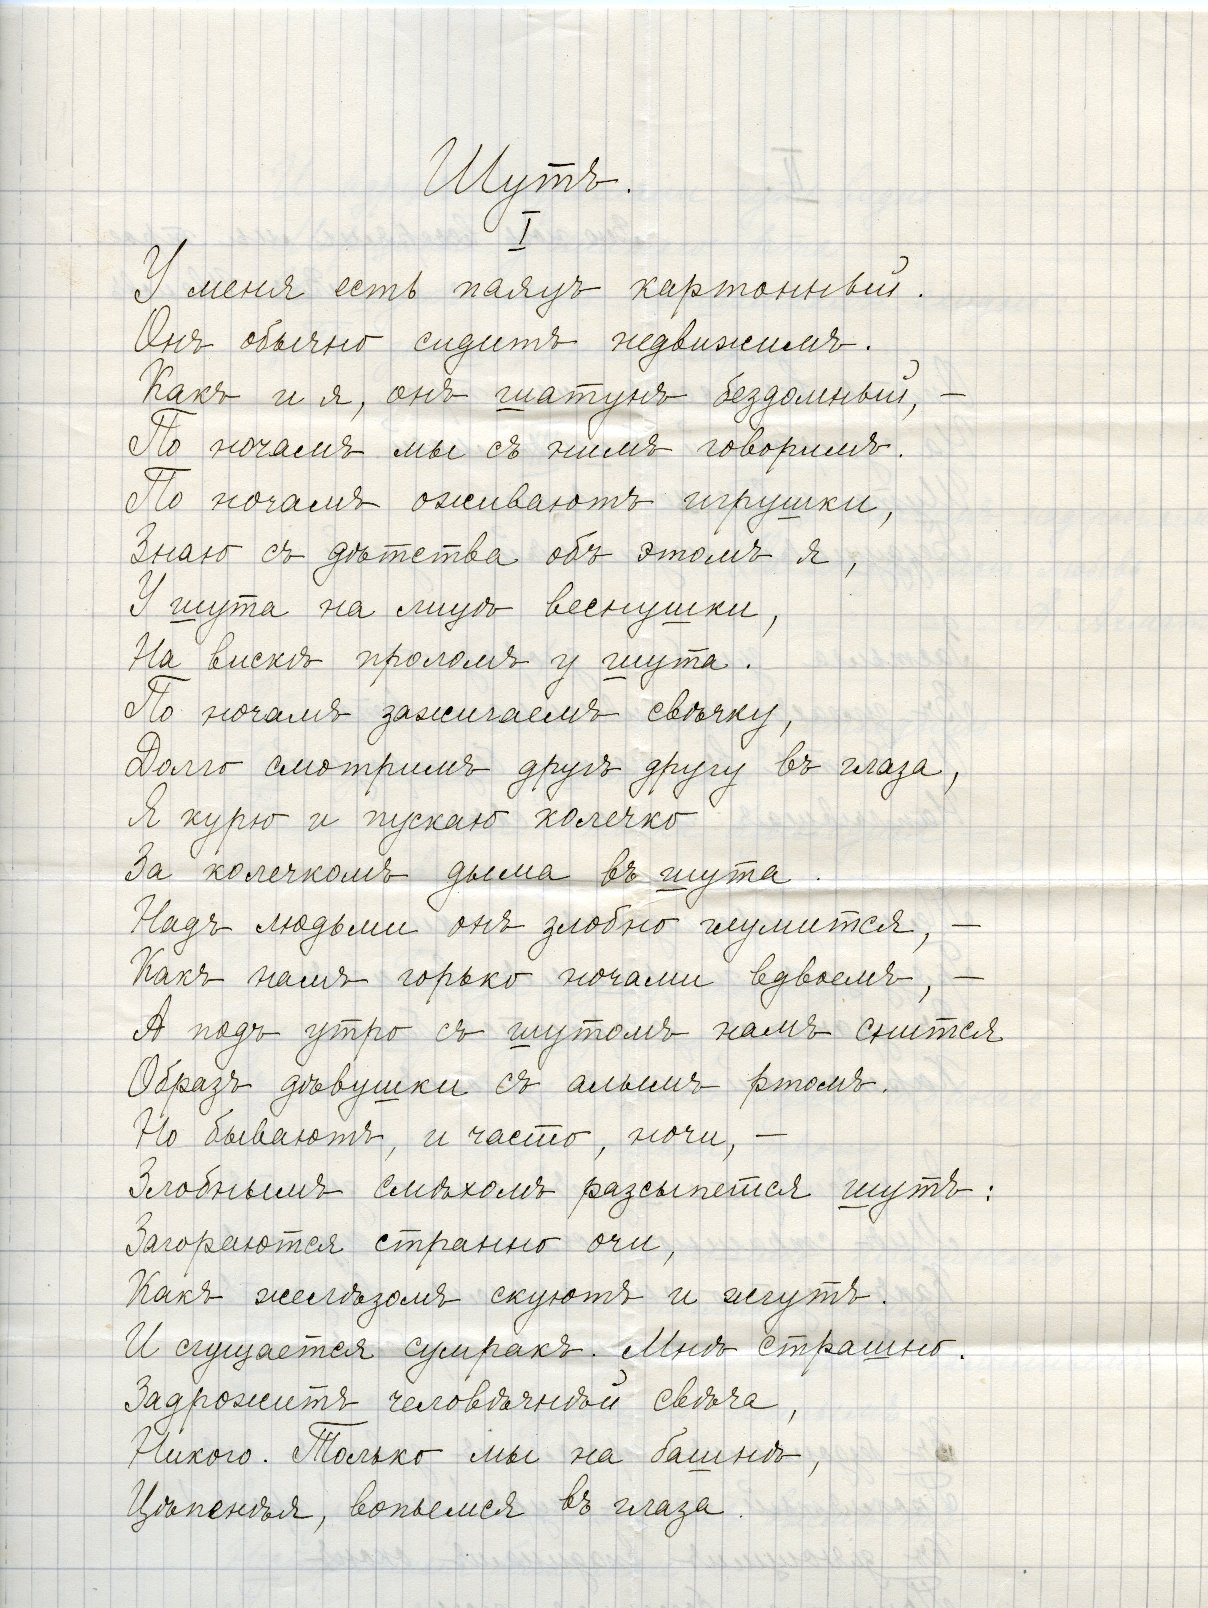 Шутъ.
I
У меня есть паяцъ картонный.
Онъ обычно сидитъ недвижимъ.
Какъ и я, онъ шатунъ бездомный, —
По ночамъ мы съ нимъ говоримъ.
По ночамъ оживаютъ игрушки,
Знаю съ дѣтства объ этомъ я,
У шута на лицѣ веснушки,
На вискѣ проломъ у шута.
По ночамъ зажигаемъ свѣчку,
Долго смотримъ другъ другу въ глаза,
Я курю и пускаю колечко
За колечкомъ дыма въ шута.
Надъ людьми онъ злобно глумится, —
Какъ намъ горько ночами вдвоемъ, —
А подъ утро съ шутомъ намъ снится
Образъ дѣвушки съ алымъ ртомъ.
Но бываютъ, и часто, ночи, —
Злобнымъ смѣхомъ разсыпется шутъ:
Загораются странно очи,
Какъ желѣзомъ скуютъ и жгутъ.
И сгущается сумракъ. Мнѣ страшно.
Задрожитъ человѣчнѣй свѣча,
Никого. Только мы на башнѣ,
Цѣпенѣя, вопьемся въ глаза.